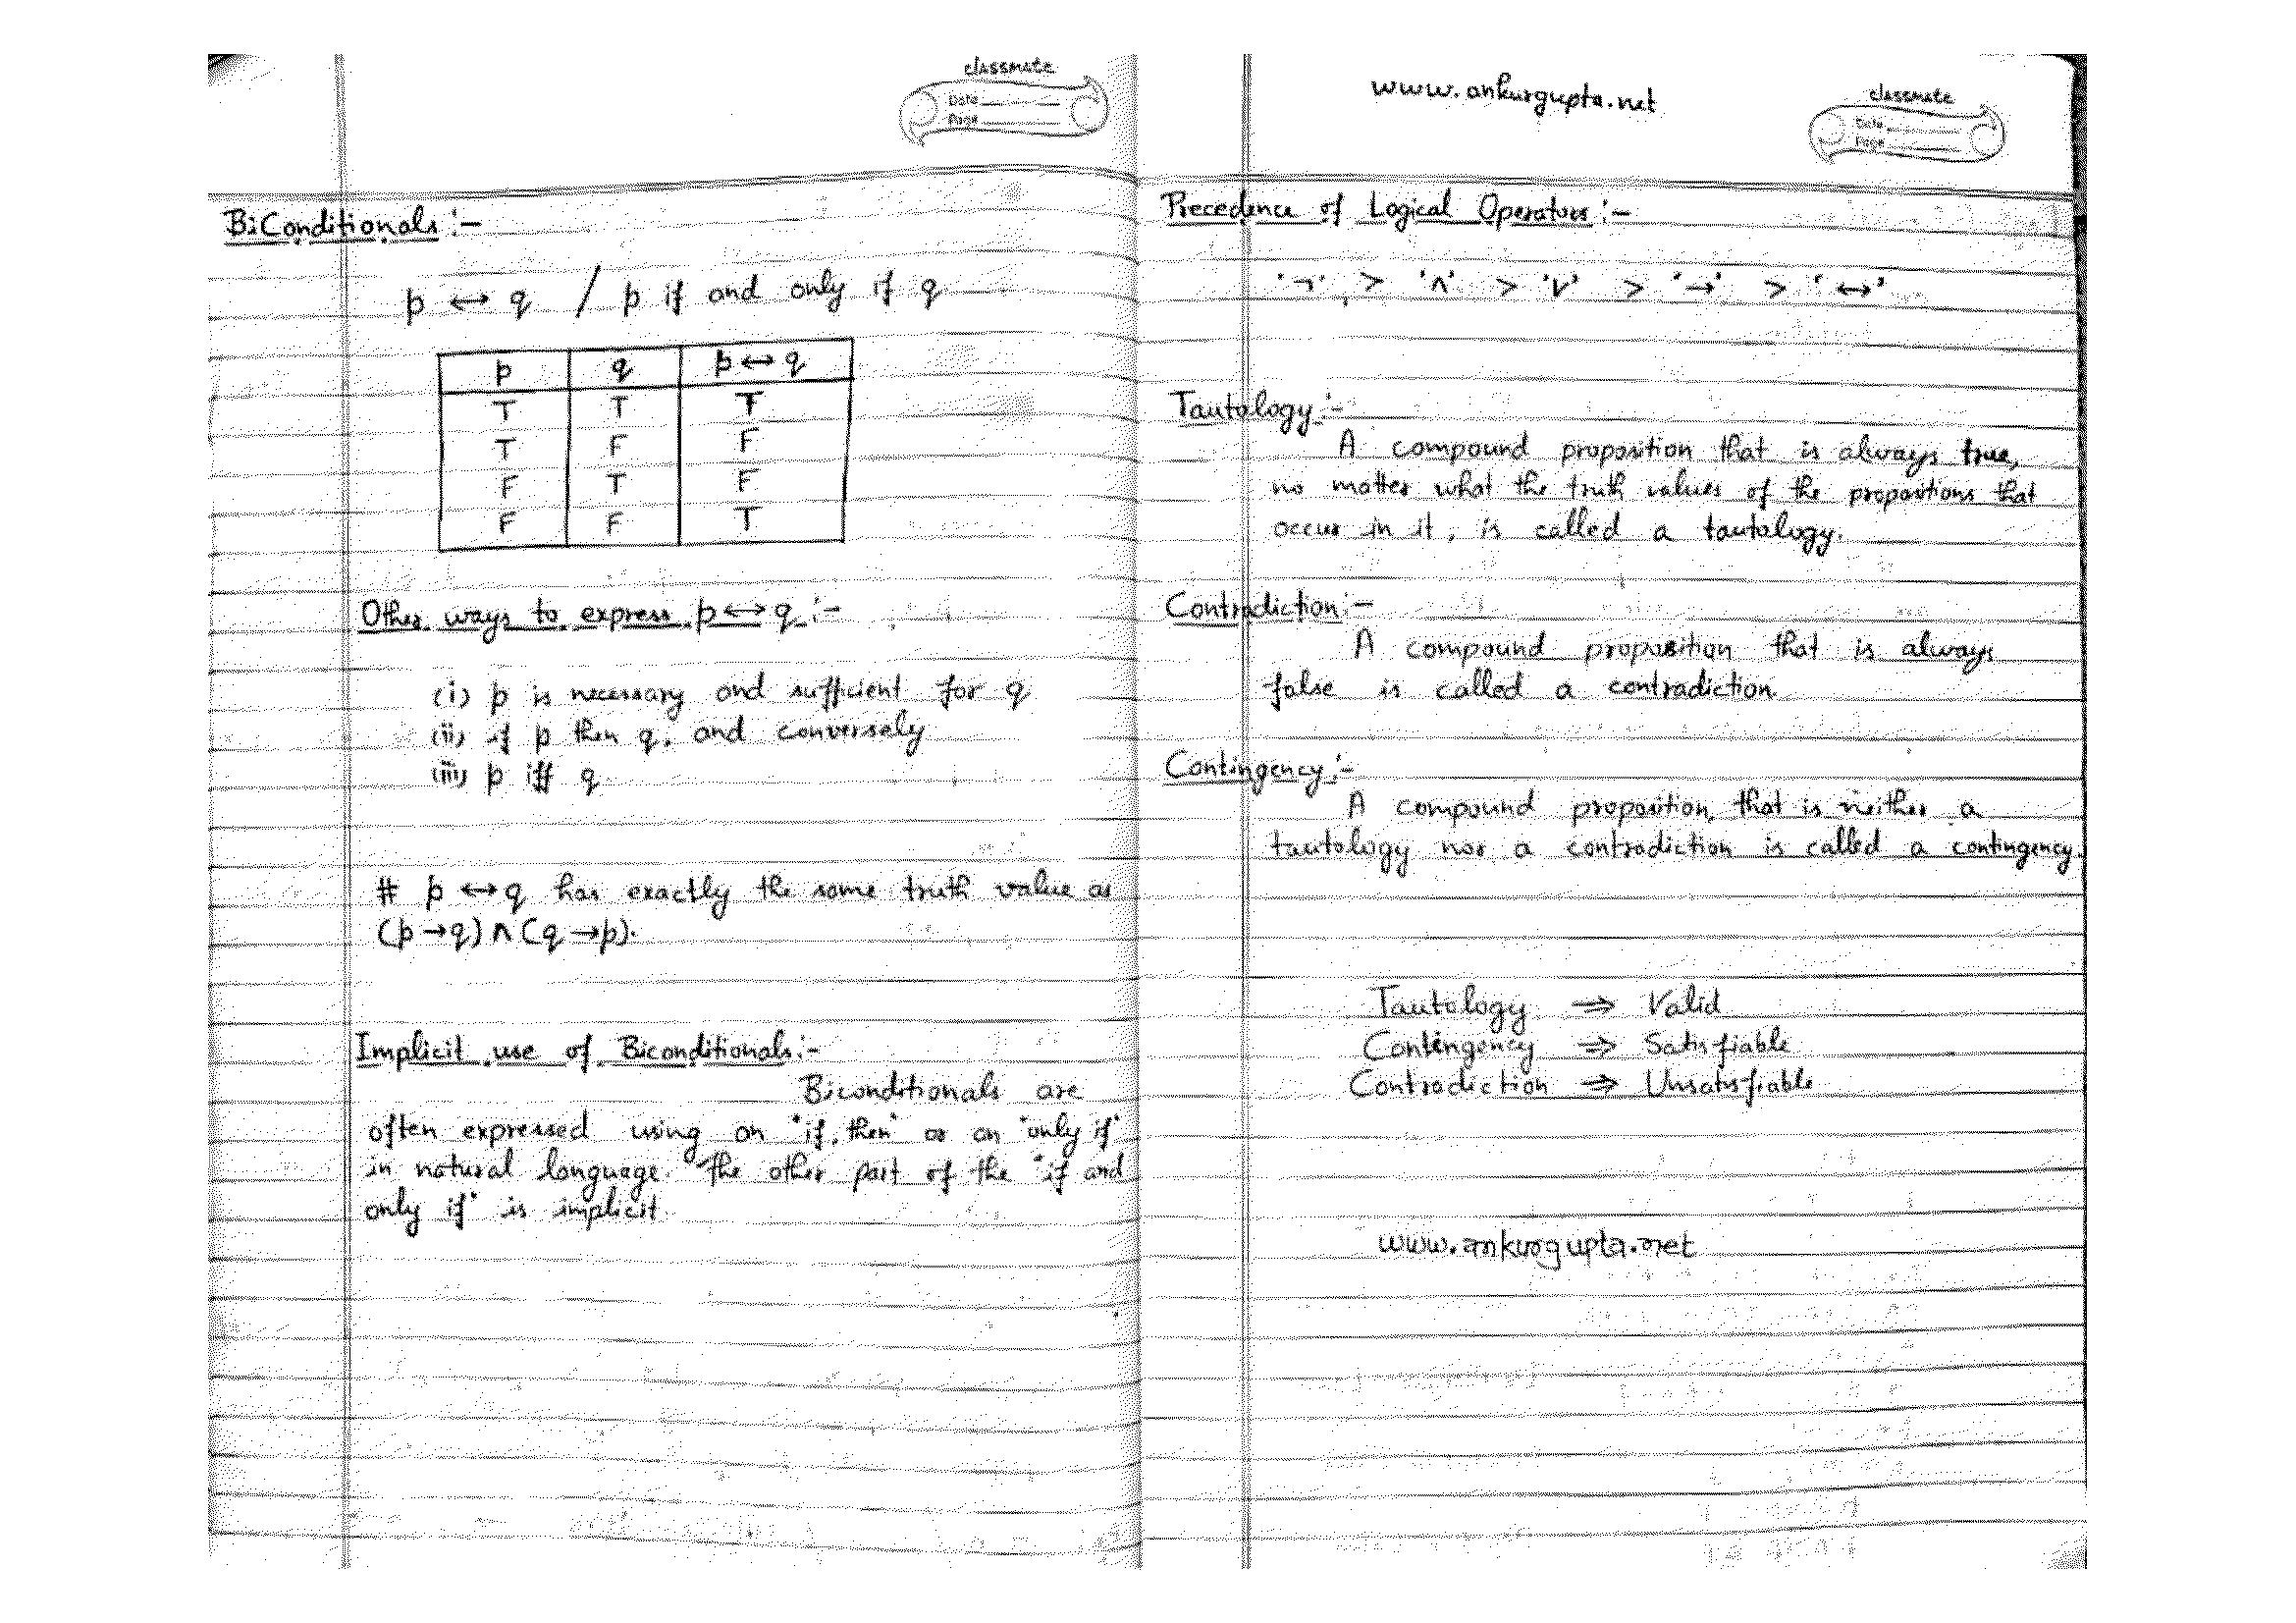 classmate
Date
Page
BiConditionals :-
p ↔ q / p if and only if q
p q p ↔ q
T T T
T F F
F T F
F F T
Other ways to express p ↔ q :-
(i) p is necessary and sufficient for q
(ii) if p then q, and conversely
(iii) p iff q
# p ↔ q has exactly the same truth value as
(p → q) ∧ (q → p).
Implicit use of Biconditionals :-
Biconditionals are
often expressed using an "if, then" or an "only if"
in natural language. The other part of the "if and
only if" is implicit.
www.ankurgupta.net
classmate
Date
Page
Precedence of Logical Operators :-
'¬' > '∧' > '∨' > '→' > '↔'
Tautology :-
A compound proposition that is always true,
no matter what the truth values of the propositions that
occur in it, is called a tautology.
Contradiction :-
A compound proposition that is always
false is called a contradiction.
Contingency :-
A compound proposition that is neither a
tautology nor a contradiction is called a contingency.
Tautology ⇒ Valid
Contingency ⇒ Satisfiable
Contradiction ⇒ Unsatisfiable
www.ankurgupta.net